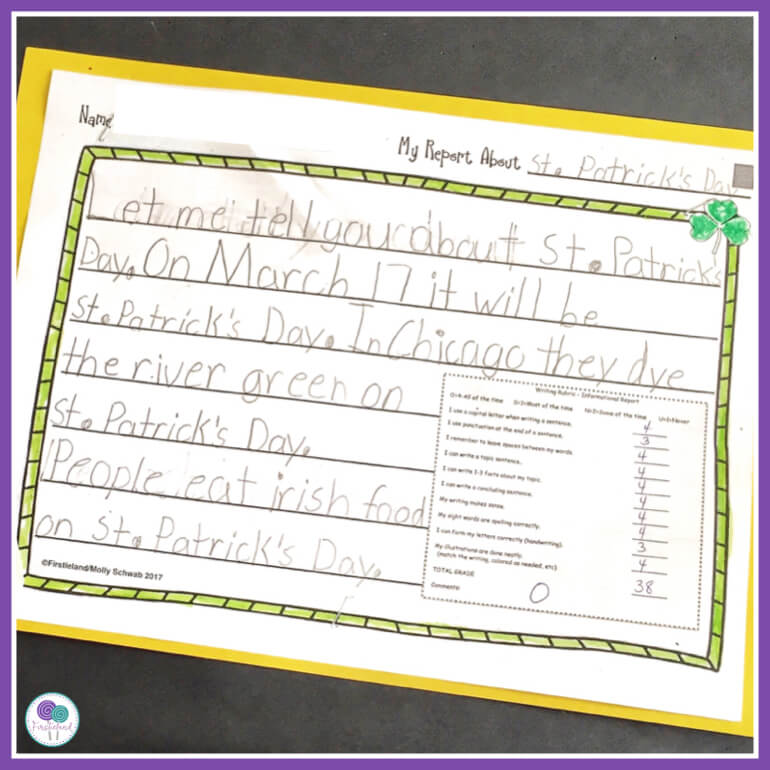 Name
My Report About St. Patrick's Day
Let me tell you about St. Patrick's
Day. On March 17 it will be
St. Patrick's Day. In Chicago they dye
the river green on
St. Patrick's Day.
People eat irish food
on St. Patrick's Day.
©Firstieland/Molly Schwab 2017
Writing Rubric - Informational Report
O=4-All of the time G=3=Most of the time N=2=Some of the time U=1=Never
I use a capital letter when writing a sentence. 4
I use punctuation at the end of a sentence. 3
I remember to leave spaces between my words. 4
I can write a topic sentence. 4
I can write 2-3 facts about my topic. 4
I can write a concluding sentence. 4
My writing makes sense. 4
My sight words are spelling correctly. 4
I can form my letters correctly (handwriting). 3
My illustrations are done neatly. 4
(match the writing, colored as needed, etc)
TOTAL GRADE 38
Comments: O
Firstieland